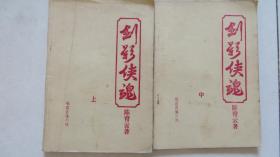 剑影侠魂
陈青云著
上
剑影侠魂
陈青云著
中